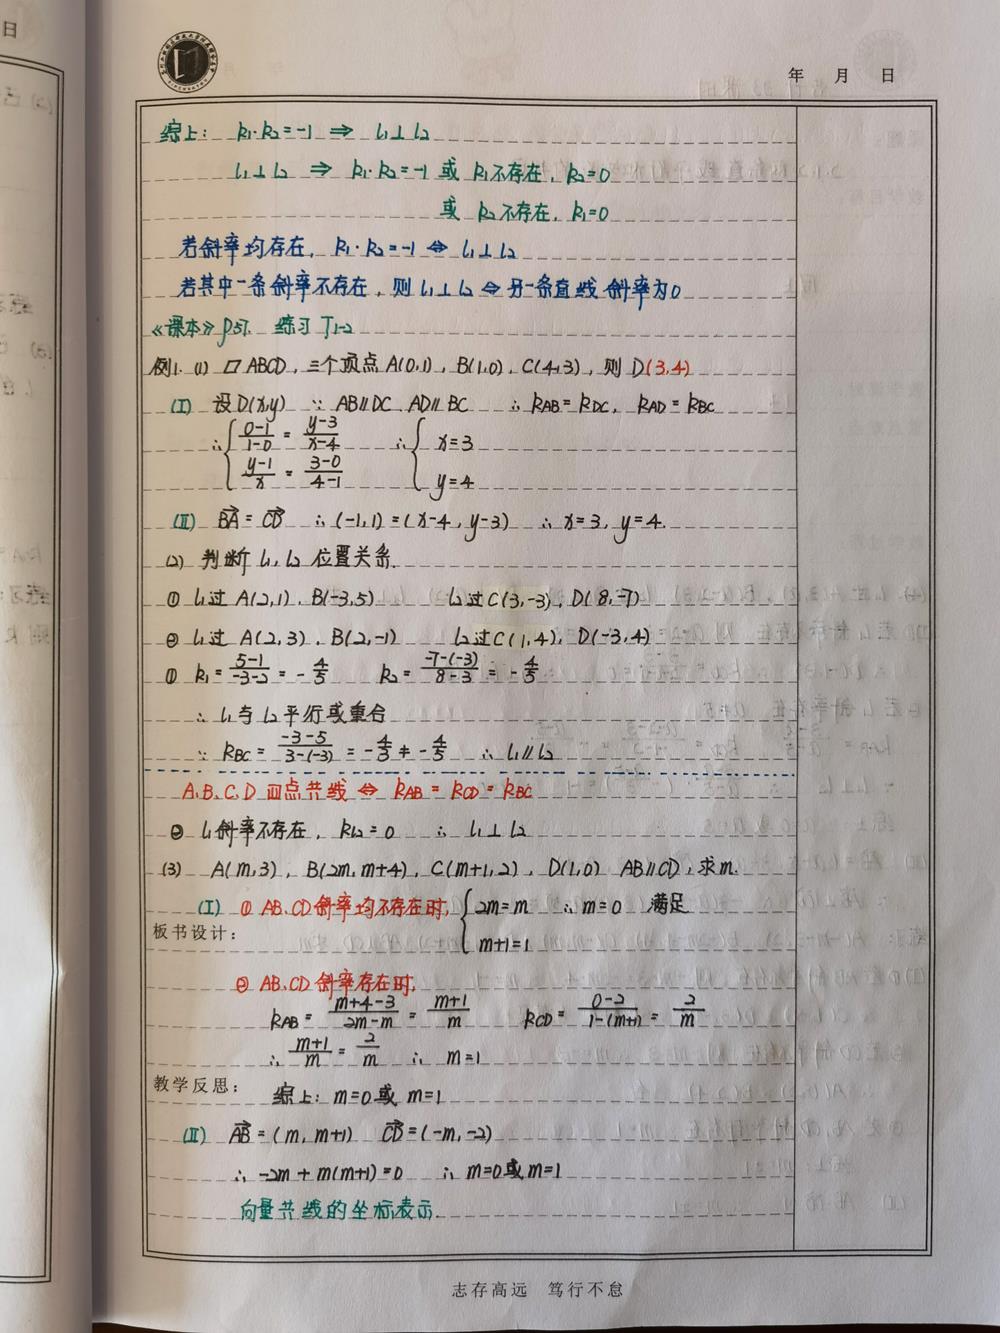 日
年 月 日
综上: k₁·k₂=-1 ⇒ l₁⊥l₂
l₁⊥l₂ ⇒ k₁·k₂=-1 或 k₁不存在, k₂=0
或 k₂不存在, k₁=0
若斜率均存在, k₁·k₂=-1 ⇔ l₁⊥l₂
若其中一条斜率不存在, 则 l₁⊥l₂ ⇔ 另一条直线斜率为0
《课本》P57. 练习 T1-2
例1. (1) ▱ABCD, 三个顶点 A(0,1), B(1,0), C(4,3), 则 D(3,4)
(Ⅰ) 设D(x,y) ∵ AB∥DC, AD∥BC ∴ kAB=kDC, kAD=kBC
∴ { (0-1)/(1-0) = (y-3)/(x-4) ∴ { x=3
(y-1)/x = (3-0)/(4-1) y=4
(Ⅱ) BA→=CD→ ∴ (-1,1)=(x-4, y-3) ∴ x=3, y=4.
(2) 判断 l₁, l₂ 位置关系.
① l₁过 A(2,1), B(-3,5) l₂过C(3,-3), D(8,-7)
② l₁过 A(2,3), B(2,-1) l₂过C(1,4), D(-3,4)
① k₁= (5-1)/(-3-2) = -4/5 k₂= (-7-(-3))/(8-3) = -4/5
∴ l₁与 l₂平行或重合
∵ kBC= (-3-5)/(3-(-3)) = -4/3 ≠ -4/5 ∴ l₁∥l₂
A.B.C.D 四点共线 ⇔ kAB=kCD=kBC
② l₁斜率不存在, kl₂=0 ∴ l₁⊥l₂
(3) A(m,3), B(2m,m+4), C(m+1,2), D(1,0) AB∥CD, 求m.
(Ⅰ) ① AB.CD斜率均不存在时, { 2m=m ∴ m=0 满足
板书设计:
m+1=1
② AB.CD 斜率存在时,
kAB= (m+4-3)/(2m-m) = (m+1)/m kCD= (0-2)/(1-(m+1)) = 2/m
∴ (m+1)/m = 2/m ∴ m=1
教学反思:
综上: m=0或 m=1
(Ⅱ) AB→=(m, m+1) CD→=(-m,-2)
∴ -2m+m(m+1)=0 ∴ m=0或m=1
向量共线的坐标表示.
志存高远 笃行不怠